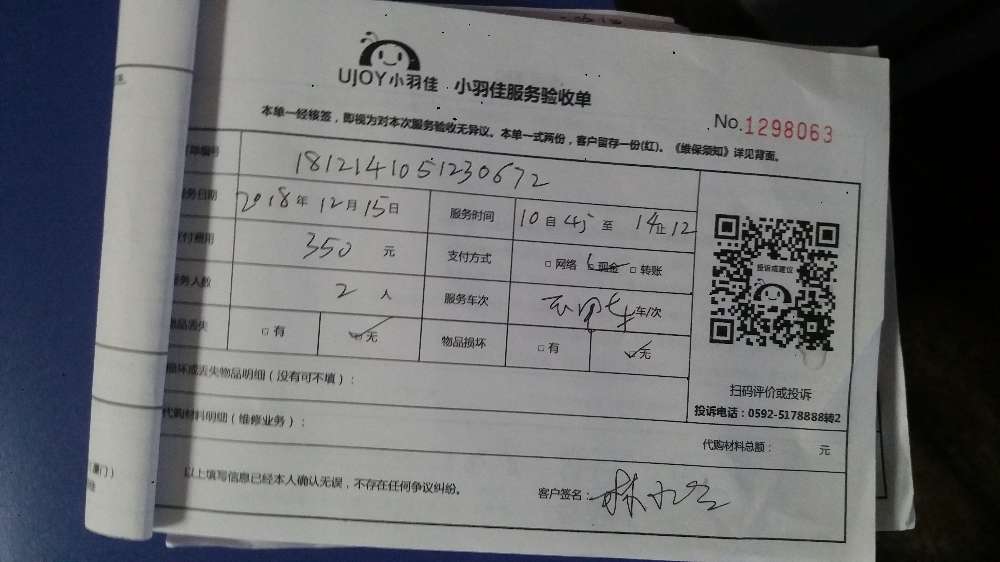 UJOY小羽佳 小羽佳服务验收单
No.1298063
本单一经核签，即视为对本次服务验收无异议。本单一式两份，客户留存一份(红)。《维保须知》详见背面。
单编号 1812141051230672
务日期 2018年12月15日 服务时间 10自45至14止12
付费用 350元 支付方式 □网络 □现金 □转账
务人数 2人 服务车次 车/次
物品丢失 □有 无 物品损坏 □有 无
损坏或丢失物品明细（没有可不填）：
代购材料明细（维修业务）：
代购材料总额： 元
以上填写信息已经本人确认无误，不存在任何争议纠纷。
客户签名：林
投诉或建议
扫码评价或投诉
投诉电话：0592-5178888转2
厦门）